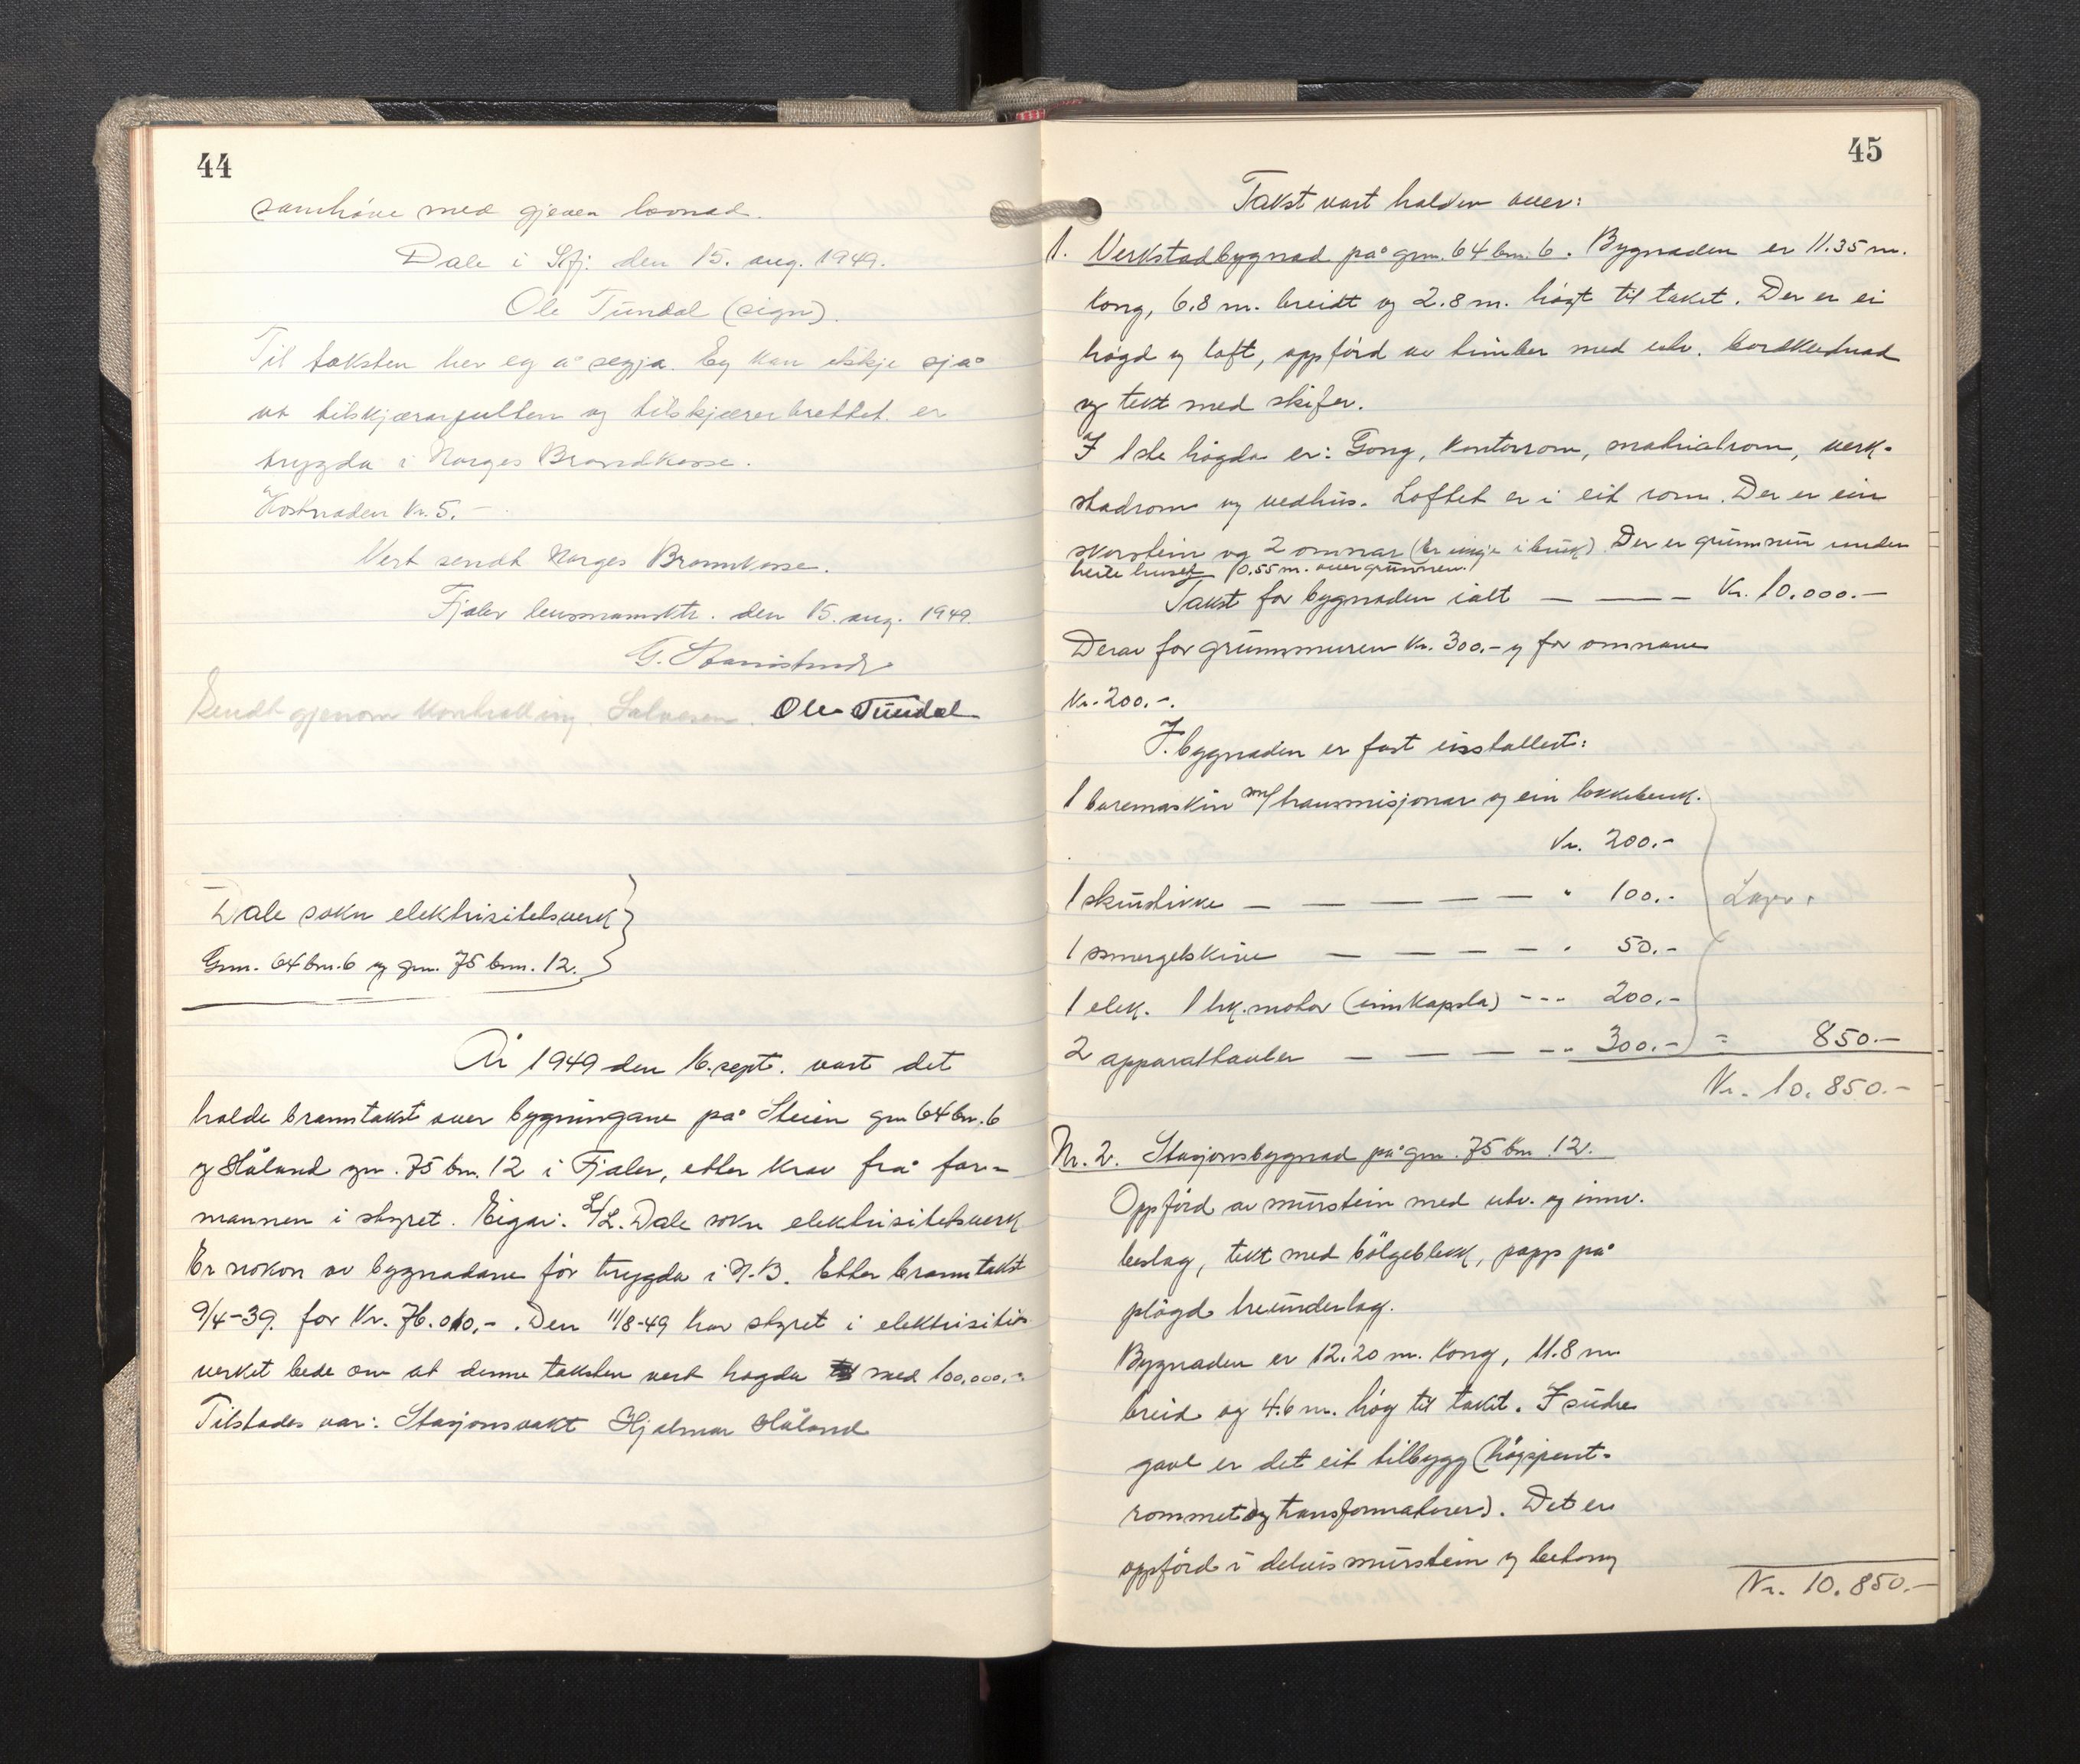 44
samhøve med gjeven lovnad.
Dale i Sfj. den 15. aug. 1949.
Ole Tundal (sign).
Til taksten her eg å segja. Eg kan ikkje sjå
at tilskjærarpulten og tilskjærerbrettet er
trygda i Norges Brandkasse.
Kostnaden kr. 5.-
Vert sendt Norges Brannkasse.
Fjaler lensmannsktr. den 15. aug. 1949.
Sendt gjenom kontroll ing. Salvesen. Ole Tundal
Dale sokn elektrisitetsverk
Gnr. 64 bnr. 6 og gnr. 75 bnr. 12.
År 1949 den 16. sept. vart det
halde branntakst over bygningane på Steien gnr 64 bnr. 6
og Håland gnr. 75 bnr. 12 i Fjaler, etter krav frå for-
mannen i styret. Eigar: L/L. Dale sokn elektrisitetsverk
Er nokon av bygnadane før trygda i N.B. Etter branntakst
9/4-39 for kr. 76.010,-. Den 11/8-49 har styret i elektrisitets
verket bede om at denne taksten vert høgda med 100.000,-
Tilstades var: Stasjonsvakt Hjalmar Håland
45
Takst vart halden over:
1. Verkstadbygnad på gnr. 64 bnr. 6. Bygnaden er 11.35 m.
long, 6.8 m. breidt og 2.8 m. høgt til taket. Der er ei
høgd og loft, oppførd av timber med utv. bordklednad
og tekt med skifer.
I 1ste høgda er: Gong, kontorrom, matrialrom, verk-
stadrom og vedhus. Loftet er i eit rom. Der er ein
skorstein og 2 omnar (Er einge i bruk). Der er grunnmur under
heile huset 0.55 m. over grunnen.
Takst for bygnaden ialt — — — Kr. 10.000.—
Derav for grunnmuren kr. 300,- og for omnane
kr. 200.-.
I bygnaden er fast installert:
1 boremaskin m/transmisjonar og ein lokkebenk.
Kr. 200.-
1 skrustikke — — — — — — " 100.-
1 smergelskive — — — — — " 50.-
1 elek. 1 hk. motor (innkapsla) --- 200.-
2 apparattavler — — — — -- 300.- = 850.—
Lager
Kr. 10.850.-
Nr. 2. Stasjonsbygnad på gnr. 75 bnr. 12.
Oppførd av murstein med utv. og innv.
beslag, tekt med bølgeblekk, papp på
pløgd treunderlag.
Bygnaden er 12.20 m. long, 11.8 m
breid og 4.6 m. høg til taket. I sudre
gavl er det eit tilbygg (høgspent-
rommet og transformatoren). Det er
oppførd i delvis murstein og betong
Kr. 10.850.-